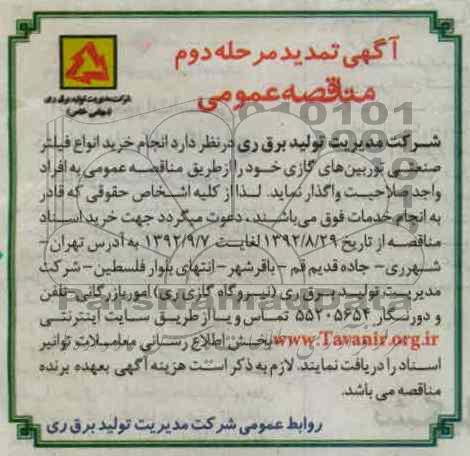 آگهی تمدید مرحله دوم
مناقصه عمومی
شرکت مدیریت تولید برق ری
(سهامی خاص)
شرکت مدیریت تولید برق ری در نظر دارد انجام خرید انواع فیلتر
صنعتی توربین‌های گازی خود را از طریق مناقصه عمومی به افراد
واجد صلاحیت واگذار نماید. لذا از کلیه اشخاص حقوقی که قادر
به انجام خدمات فوق می‌باشند، دعوت میگردد جهت خرید اسناد
مناقصه از تاریخ ۱۳۹۲/۸/۲۹ لغایت ۱۳۹۲/۹/۷ به آدرس تهران -
شهرری - جاده قدیم قم - باقرشهر - انتهای بلوار فلسطین - شرکت
مدیریت تولید برق ری (نیروگاه گازی ری) امور بازرگانی - تلفن
و دورنگار ۵۵۲۰۵۶۵۴ تماس و یا از طریق سایت اینترنتی
www.Tavanir.org.ir بخش اطلاع رسانی معاملات توانیر
اسناد را دریافت نمایند. لازم به ذکر است هزینه آگهی بعهده برنده
مناقصه می باشد.
روابط عمومی شرکت مدیریت تولید برق ری